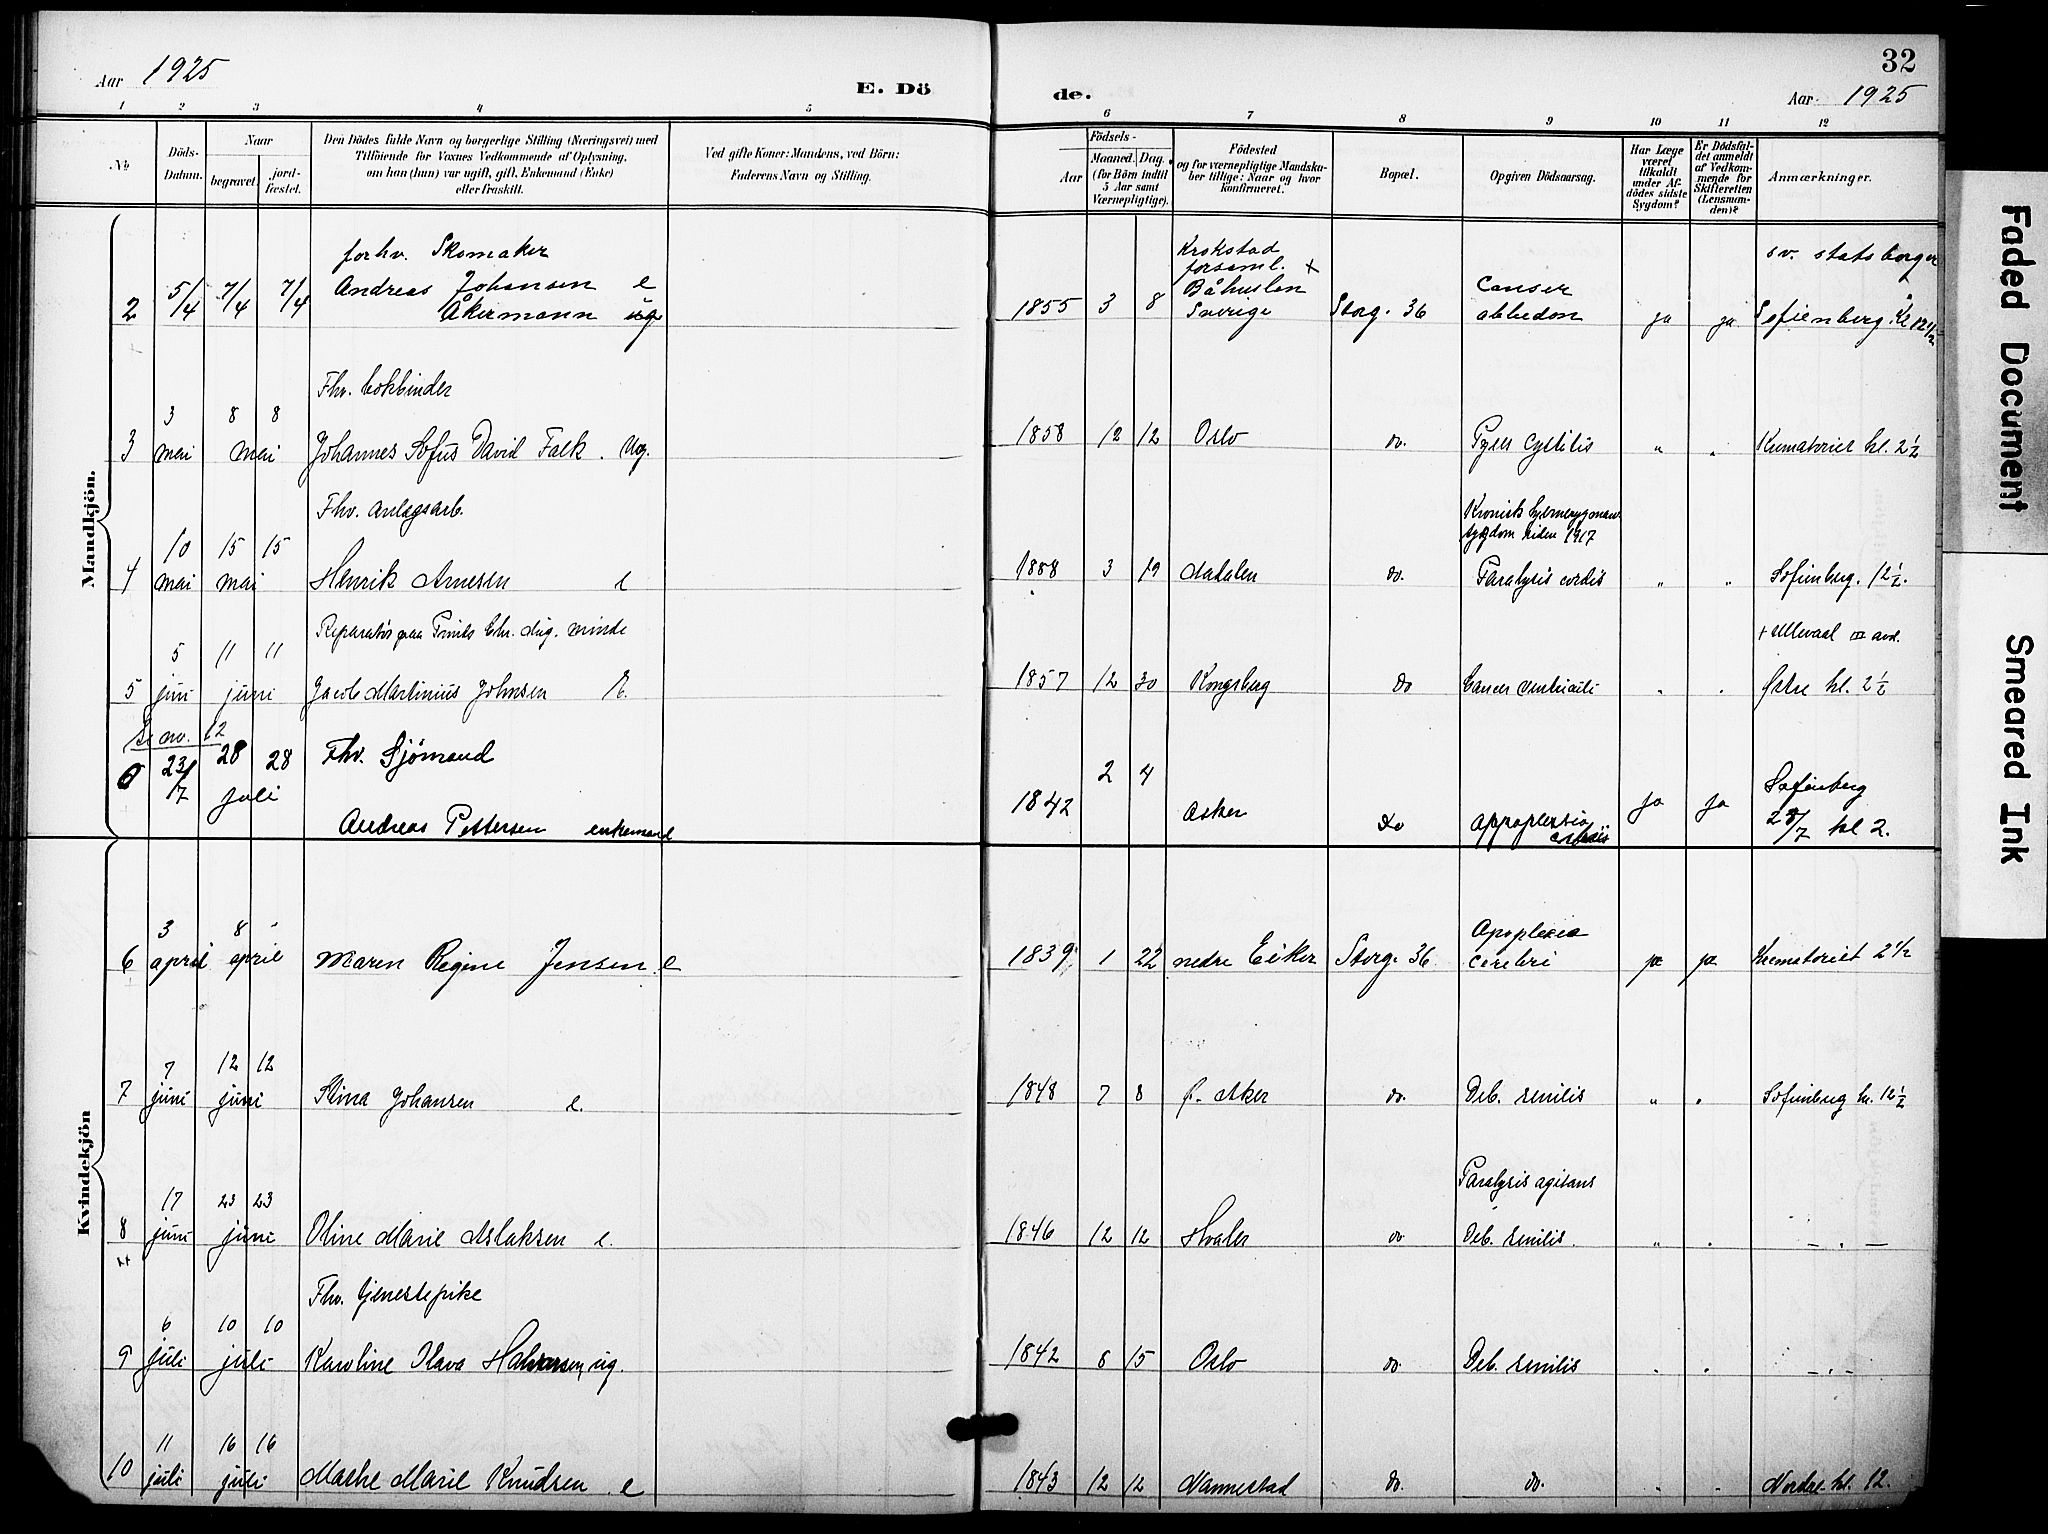 Aar 1925
E. Dö
de.
32
Aar 1925
1 2 3 4 5 6 7 8 9 10 11 12
No
Döds-Datum.
Naar
begravet.
jord-fæstet.
Den Dödes fulde Navn og borgerlige Stilling (Næringsvei) med
Tilföiende for Voxnes Vedkommende af Oplysning,
om han (hun) var ugift, gift, Enkemand (Enke)
eller fraskilt.
Ved gifte Koner: Mandens, ved Börn:
Faderens Navn og Stilling.
Födsels-
Aar
Maaned. Dag.
(for Börn indtil
5 Aar samt
Værnepligtige).
Födested
og for værnepligtige Mandska-
ber tillige: Naar og hvor
konfirmeret.
Bopæl.
Opgiven Dödsaarsag.
Har Læge
været
tilkaldt
under Af-
dödes sidste
Sygdom?
Er Dödsfal-
det anmeldt
af Vedkom-
mende for
Skifteretten
(Lensman-
den)?
Anmærkninger.
Mandkjön.
forhv. Skomaker
Krokstad
sv. statsborger
Andreas Johansen e
forsaml. +
Båhuslen
2 5/4 7/4 7/4 Åkermann ug 1855 3 8 Sverige Storg. 36 abbedom ja ja Sofienberg. Kl 12 1/2
Fhv. bokbinder
3 8 8
3 mai mai Johannes Sofus David Falk. Ug. 1858 12 12 Oslo do. cystitis " " Krematoriet kl. 2 1/2
Fhv. anlegsarb.
Kronisk
sygdom siden 1917
10 15 15
4 mai mai Henrik Arnesen e 1858 3 19 Aadalen do. Paralysis cordis " " Sofienberg. 12 1/2.
Reparatör paa Prinds Chr. Aug. minde
+ Ullevaal III avd.
5 11 11
5 juni juni Jacob Martinius Johnsen E. 1857 12 30 Kongsberg do Cancer ventriculi " " Østre kl. 2 1/2
Se nr. 12
6 23/7 28 28 juli Fhv. Sjömand
Andreas Pettersen enkemand 1842 2 4 Asker do appoplexia ja ja Sofienberg
28/7 kl 2.
Kvindekjön
3 8 "
Apoplexia
6 april april Maren Regine Jensen e 1839 1 22 nedre Eiker Storg. 36 cerebri ja ja Krematoriet 2 1/2
7 12 12
7 juni juni Stina Johansen e. 1848 7 8 Ø. Aker do. Deb. senilis " " Sofienberg kl. 12 1/2
17 23 23
Paralysis agitans
8 juni juni Oline Marie Aslaksen e. 1846 12 12 Hvaler do. Deb. senilis. " " — " —
Fhv. tjenestepike
6 10 10
9 juli juli Karoline Olava Halvorsen, ug. 1842 8 15 Oslo do. Deb. senilis " " — " —
11 16 16
10 juli juli Marthe Marie Knudsen. e 1843 12 12 Nannestad do. do. " " Nordre kl. 12.
Faded Document
Smeared Ink